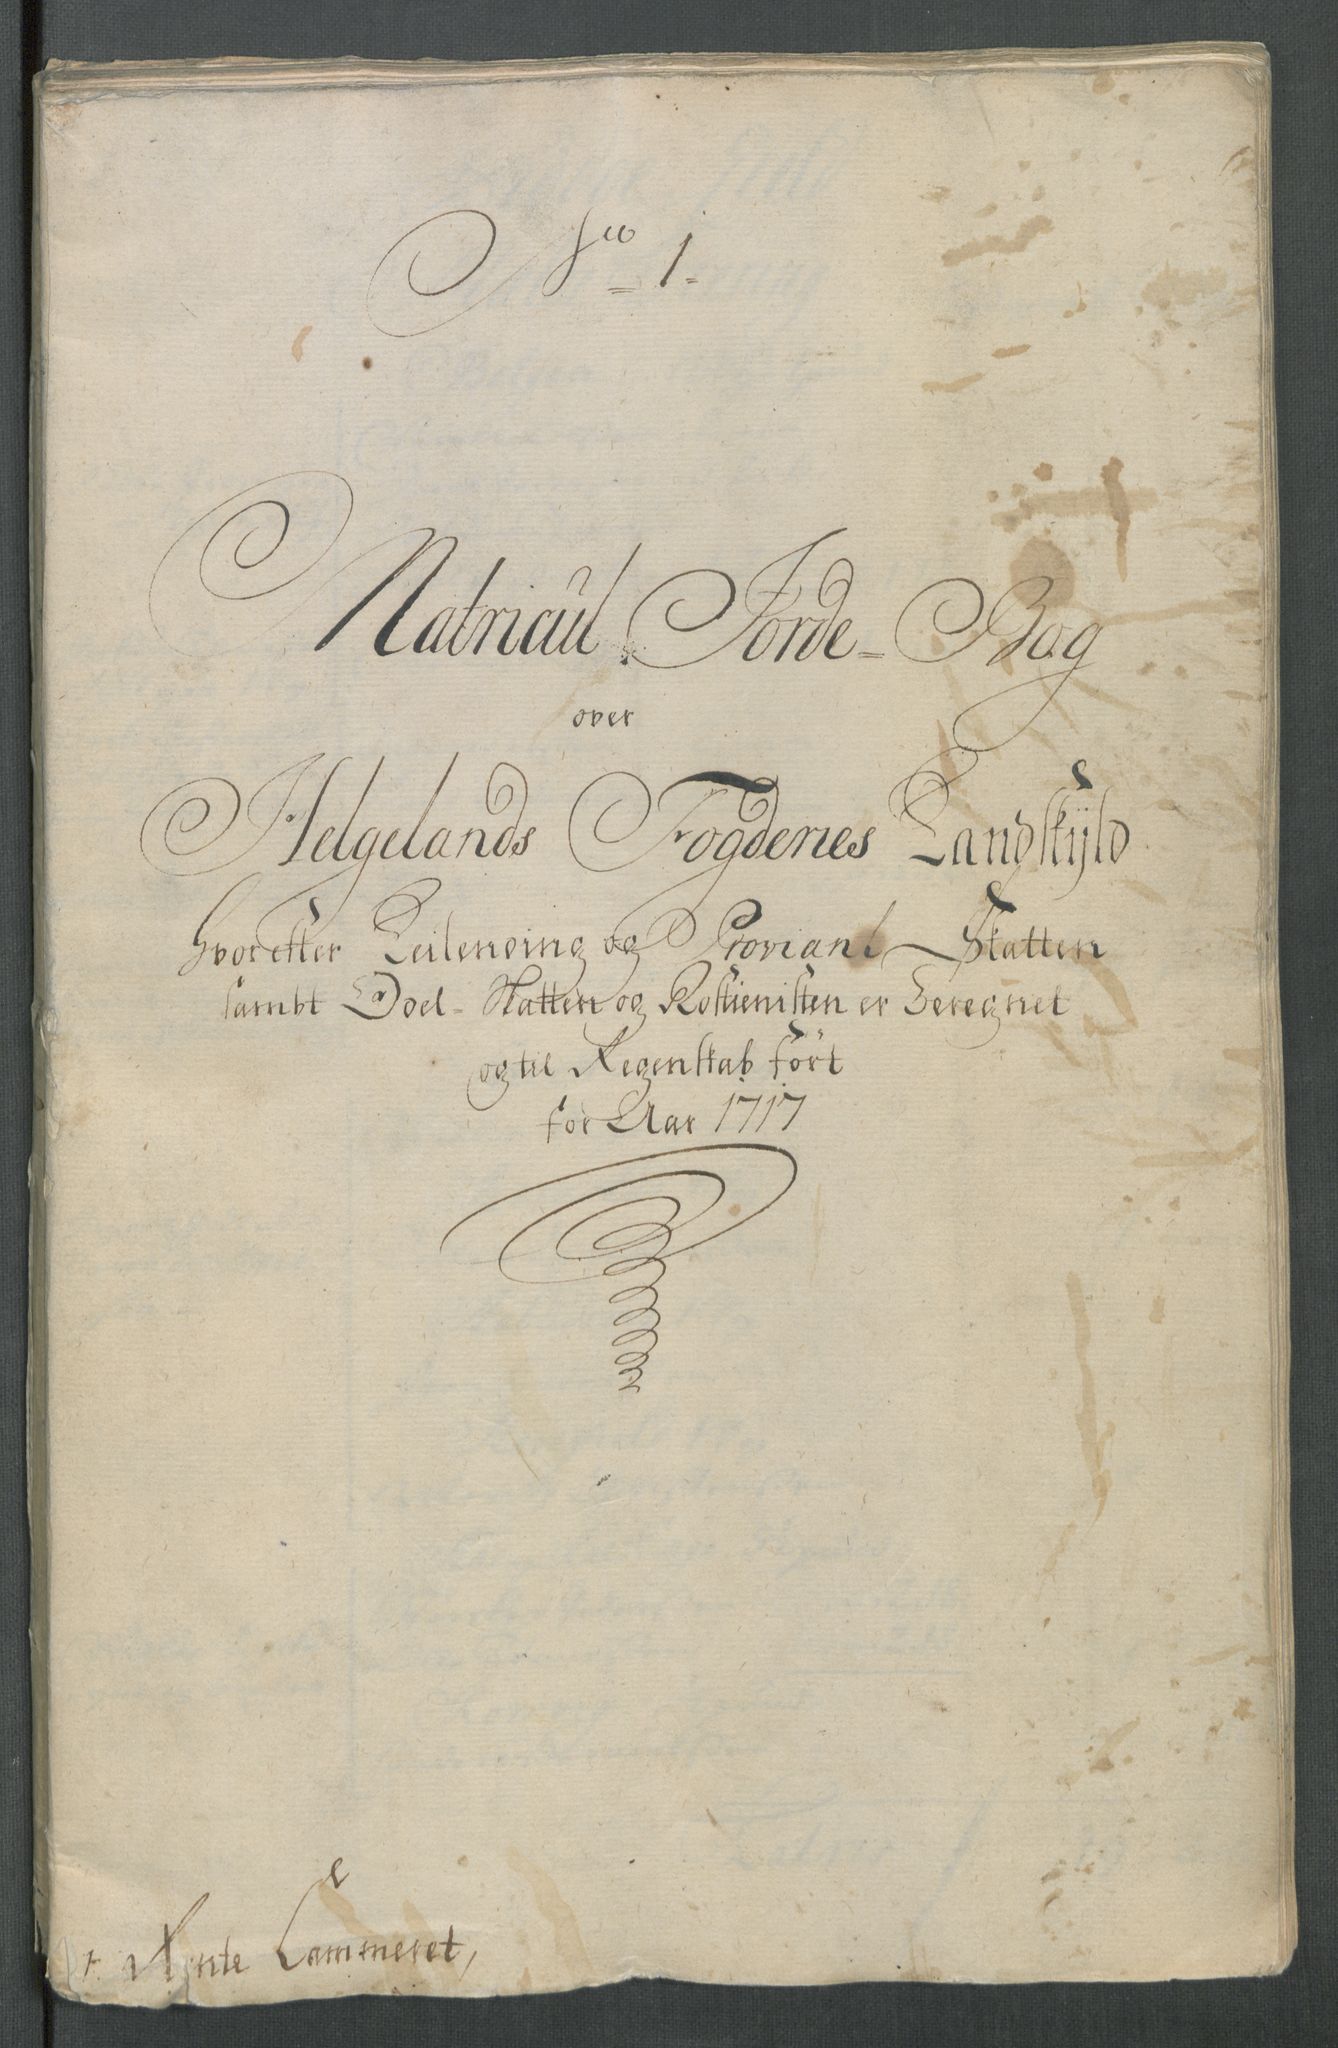 No 1.
Matricul Jorde-Bog
over
Helgelands Fogderies Landskyld
Hvorefter Leilending og Proviant Skatten
sambt Doel-Skatten og Rostienisten er Beregnet
og til Regenskab ført
for Aar 1717
Rente Cammeret,